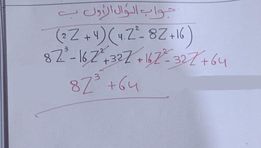 جواب السؤال الأول ب
(2Z+4)(4Z²-8Z+16)
8Z³-16Z²+32Z+16Z²-32Z+64
8Z³+64